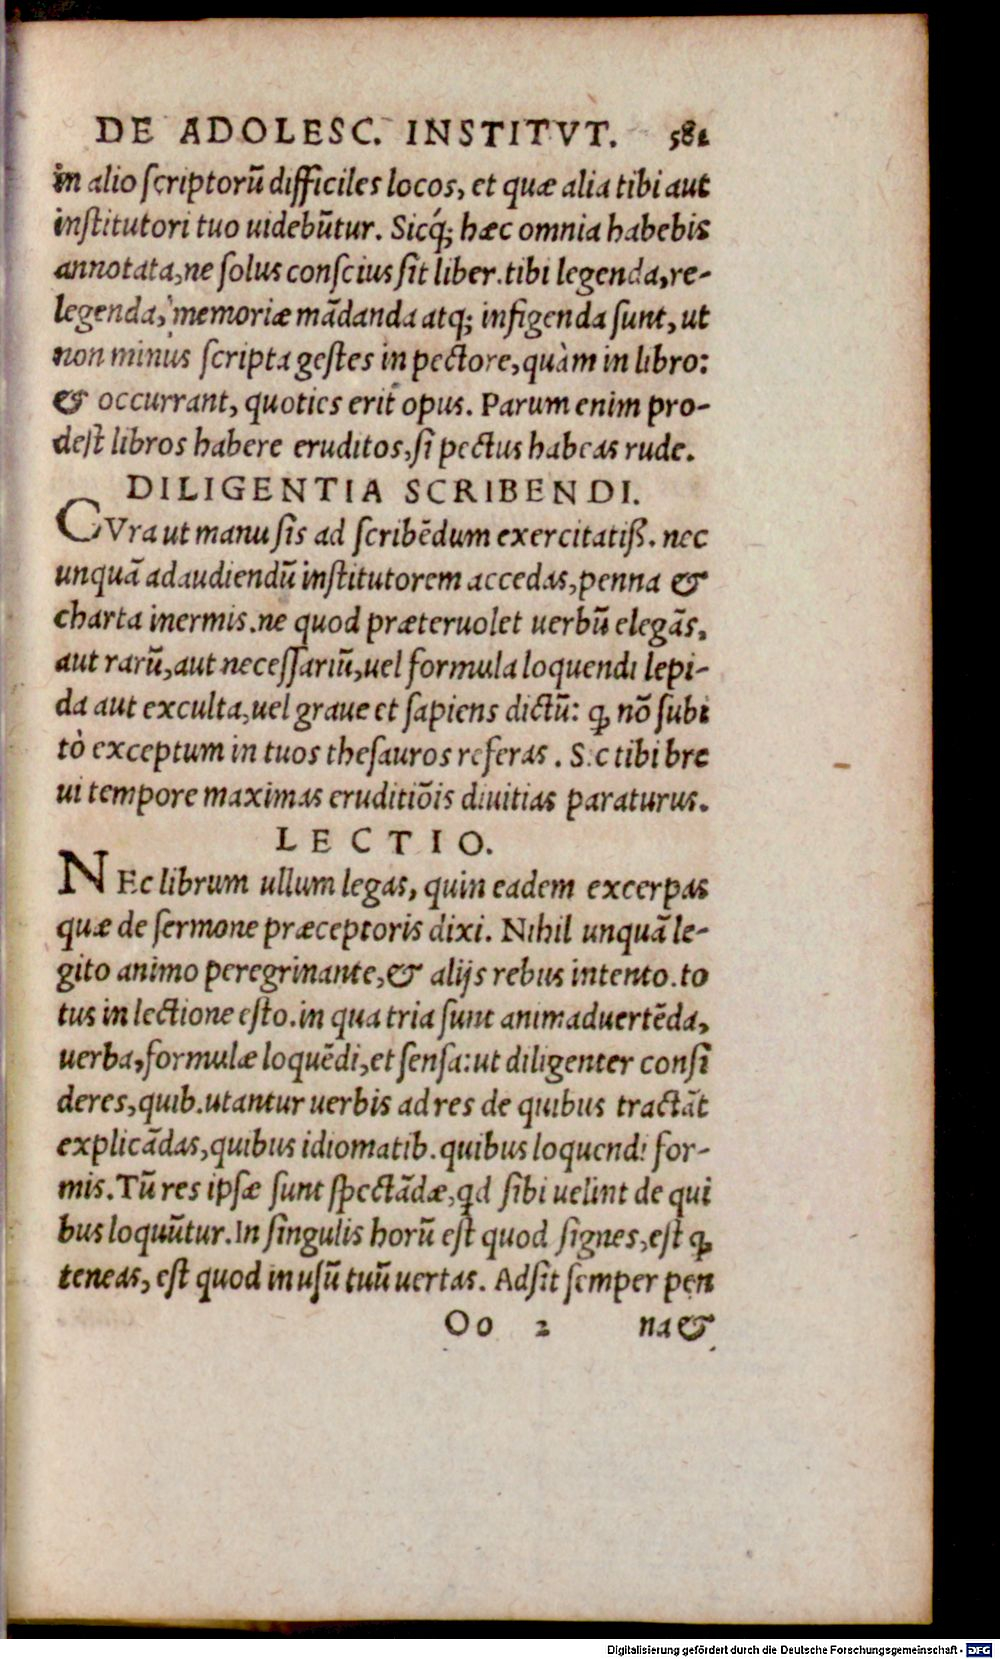 DE ADOLESC. INSTITVT. 581
in alio scriptorũ difficiles locos, et quæ alia tibi aut
institutori tuo uidebũtur. Sicq́; hæc omnia habebis
annotata, ne solus conscius sit liber. tibi legenda, re-
legenda, memoriæ mãdanda atq; infigenda sunt, ut
non minus scripta gestes in pectore, quàm in libro:
& occurrant, quoties erit opus. Parum enim pro-
dest libros habere eruditos, si pectus habeas rude.
DILIGENTIA SCRIBENDI.
CVra ut manu sis ad scribẽdum exercitatiß. nec
unquã ad audiendũ institutorem accedas, penna &
charta inermis. ne quod præteruolet uerbũ elegãs,
aut rarũ, aut necessariũ, uel formula loquendi lepi-
da aut exculta, uel graue et sapiens dictũ: ꝙ nõ subi
tò exceptum in tuos thesauros referas. Sic tibi bre
ui tempore maximas eruditiõis diuitias paraturus.
LECTIO.
NEc librum ullum legas, quin eadem excerpas
quæ de sermone præceptoris dixi. Nihil unquã le-
gito animo peregrinante, & alijs rebus intento. to
tus in lectione esto. in qua tria sunt animaduertẽda,
uerba, formulæ loquẽdi, et sensa: ut diligenter consi
deres, quib. utantur uerbis ad res de quibus tractãt
explicãdas, quibus idiomatib. quibus loquendi for-
mis. Tũ res ipsæ sunt spectãdæ, qd sibi uelint de qui
bus loquũtur. In singulis horũ est quod signes, est ꝙ
teneas, est quod in usũ tuũ uertas. Adsit semper pen
Oo 2 na &
Digitalisierung gefördert durch die Deutsche Forschungsgemeinschaft - DFG